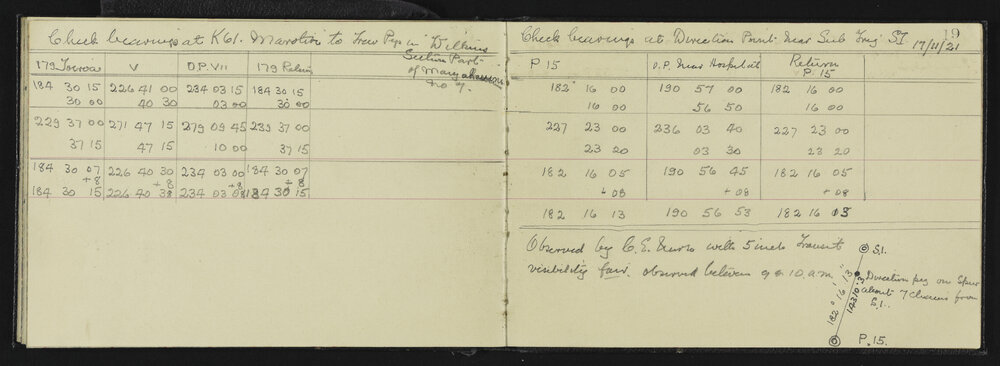 Check bearings at K61. Marotiri to Trew Pegs in Wilkins
Section Part
of Mangahauini
No 7.
179 Tocroa V O.P. VII 179 Return
184 30 15 226 41 00 234 03 15 184 30 15
30 00 40 30 03 00 30 00
229 37 00 271 47 15 279 09 45 239 37 00
37 15 47 15 10 00 37 15
184 30 07 226 40 30 234 03 00 184 30 07
+8 +8 +8 +8
184 30 15 226 40 38 234 03 08 184 30 15
19
Check bearings at Direction Point near Sub Trig SI
17/11/21
P 15 O.P. near Hospital Return
P. 15
182 16 00 190 57 00 182 16 00
16 00 56 50 16 00
227 23 00 236 03 40 227 23 00
23 20 03 30 23 20
182 16 05 190 56 45 182 16 05
+08 +08 +08
182 16 13 190 56 53 182 16 13
Observed by C. E. with 5 inch Transit
visibility fair. observed between 9 & 10. a.m.
S.I.
Direction peg on Spur
about 7 chains from
S.I.
182° 16' 13"
14310.3
P. 15.